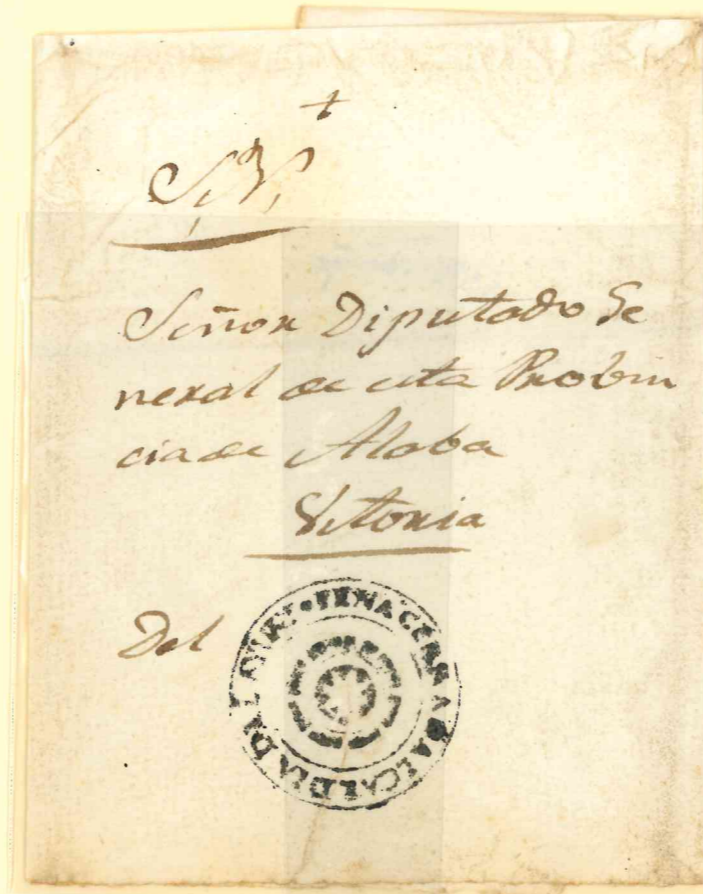 +
S. N.
Señor Diputado Ge
neral de esta Probin
cia de Alaba
Vitoria
Del
ALCALDIA DE